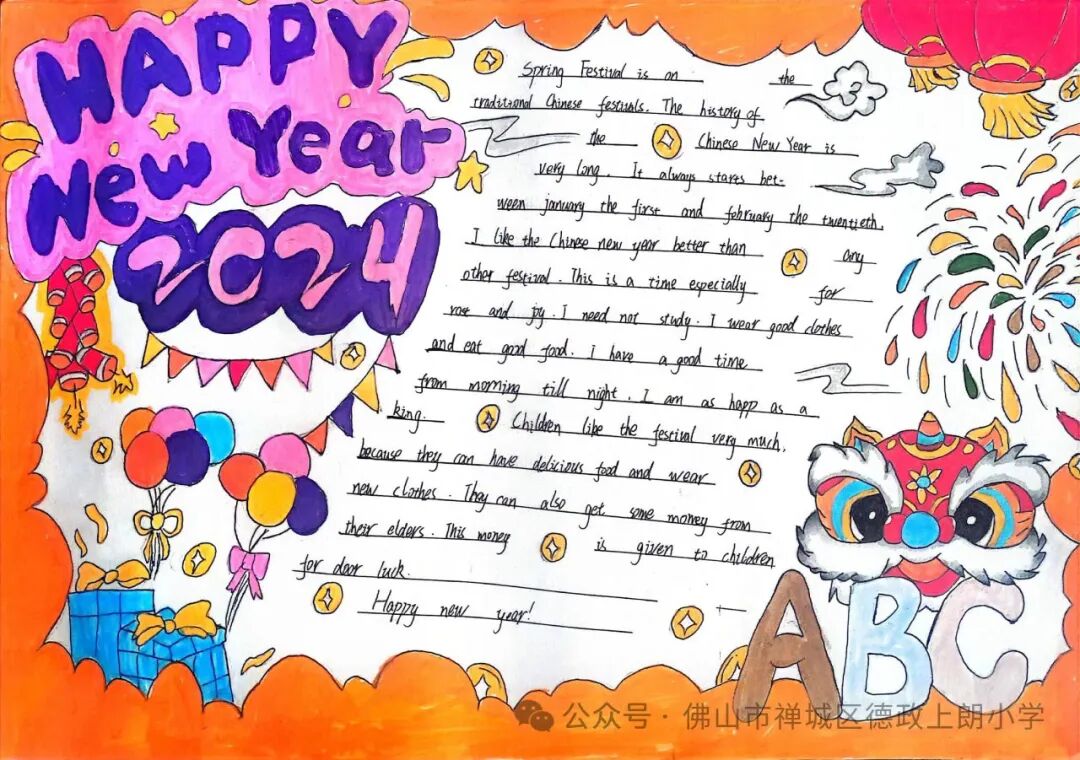 HAPPY
New Year
2024
Spring Festival is on the
traditional Chinese festivals. The history of
the Chinese New Year is
very long. It always starts bet-
ween january the first and february the twentieth.
I like the Chinese new year better than any
other festival. This is a time especially for
rest and joy. I need not study. I wear good clothes
and eat good food. i have a good time
from morning till night. I am as happ as a
king. Children like the festival very much,
because they can have delicious food and wear
new clothes. They can also get some money from
their elders. This money is given to children
for door luck.
Happy new year!
ABC
公众号·佛山市禅城区德政上朗小学